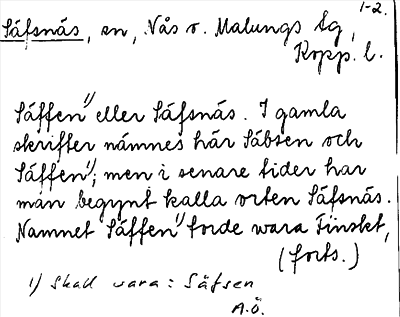 1-2.
Säfsnäs, sn, Nås o. Malungs lg,
Kopp. l.
Säffen¹⁾ eller Säfsnäs. I gamla
skrifter nämnes här Säbsen och
Säffen¹⁾; men i senare tider har
man begynt kalla orten Säfsnäs.
Namnet Säffen¹⁾ torde wara Finskt,
(forts.)
1) Skall vara: Säfsen
A.Ö.